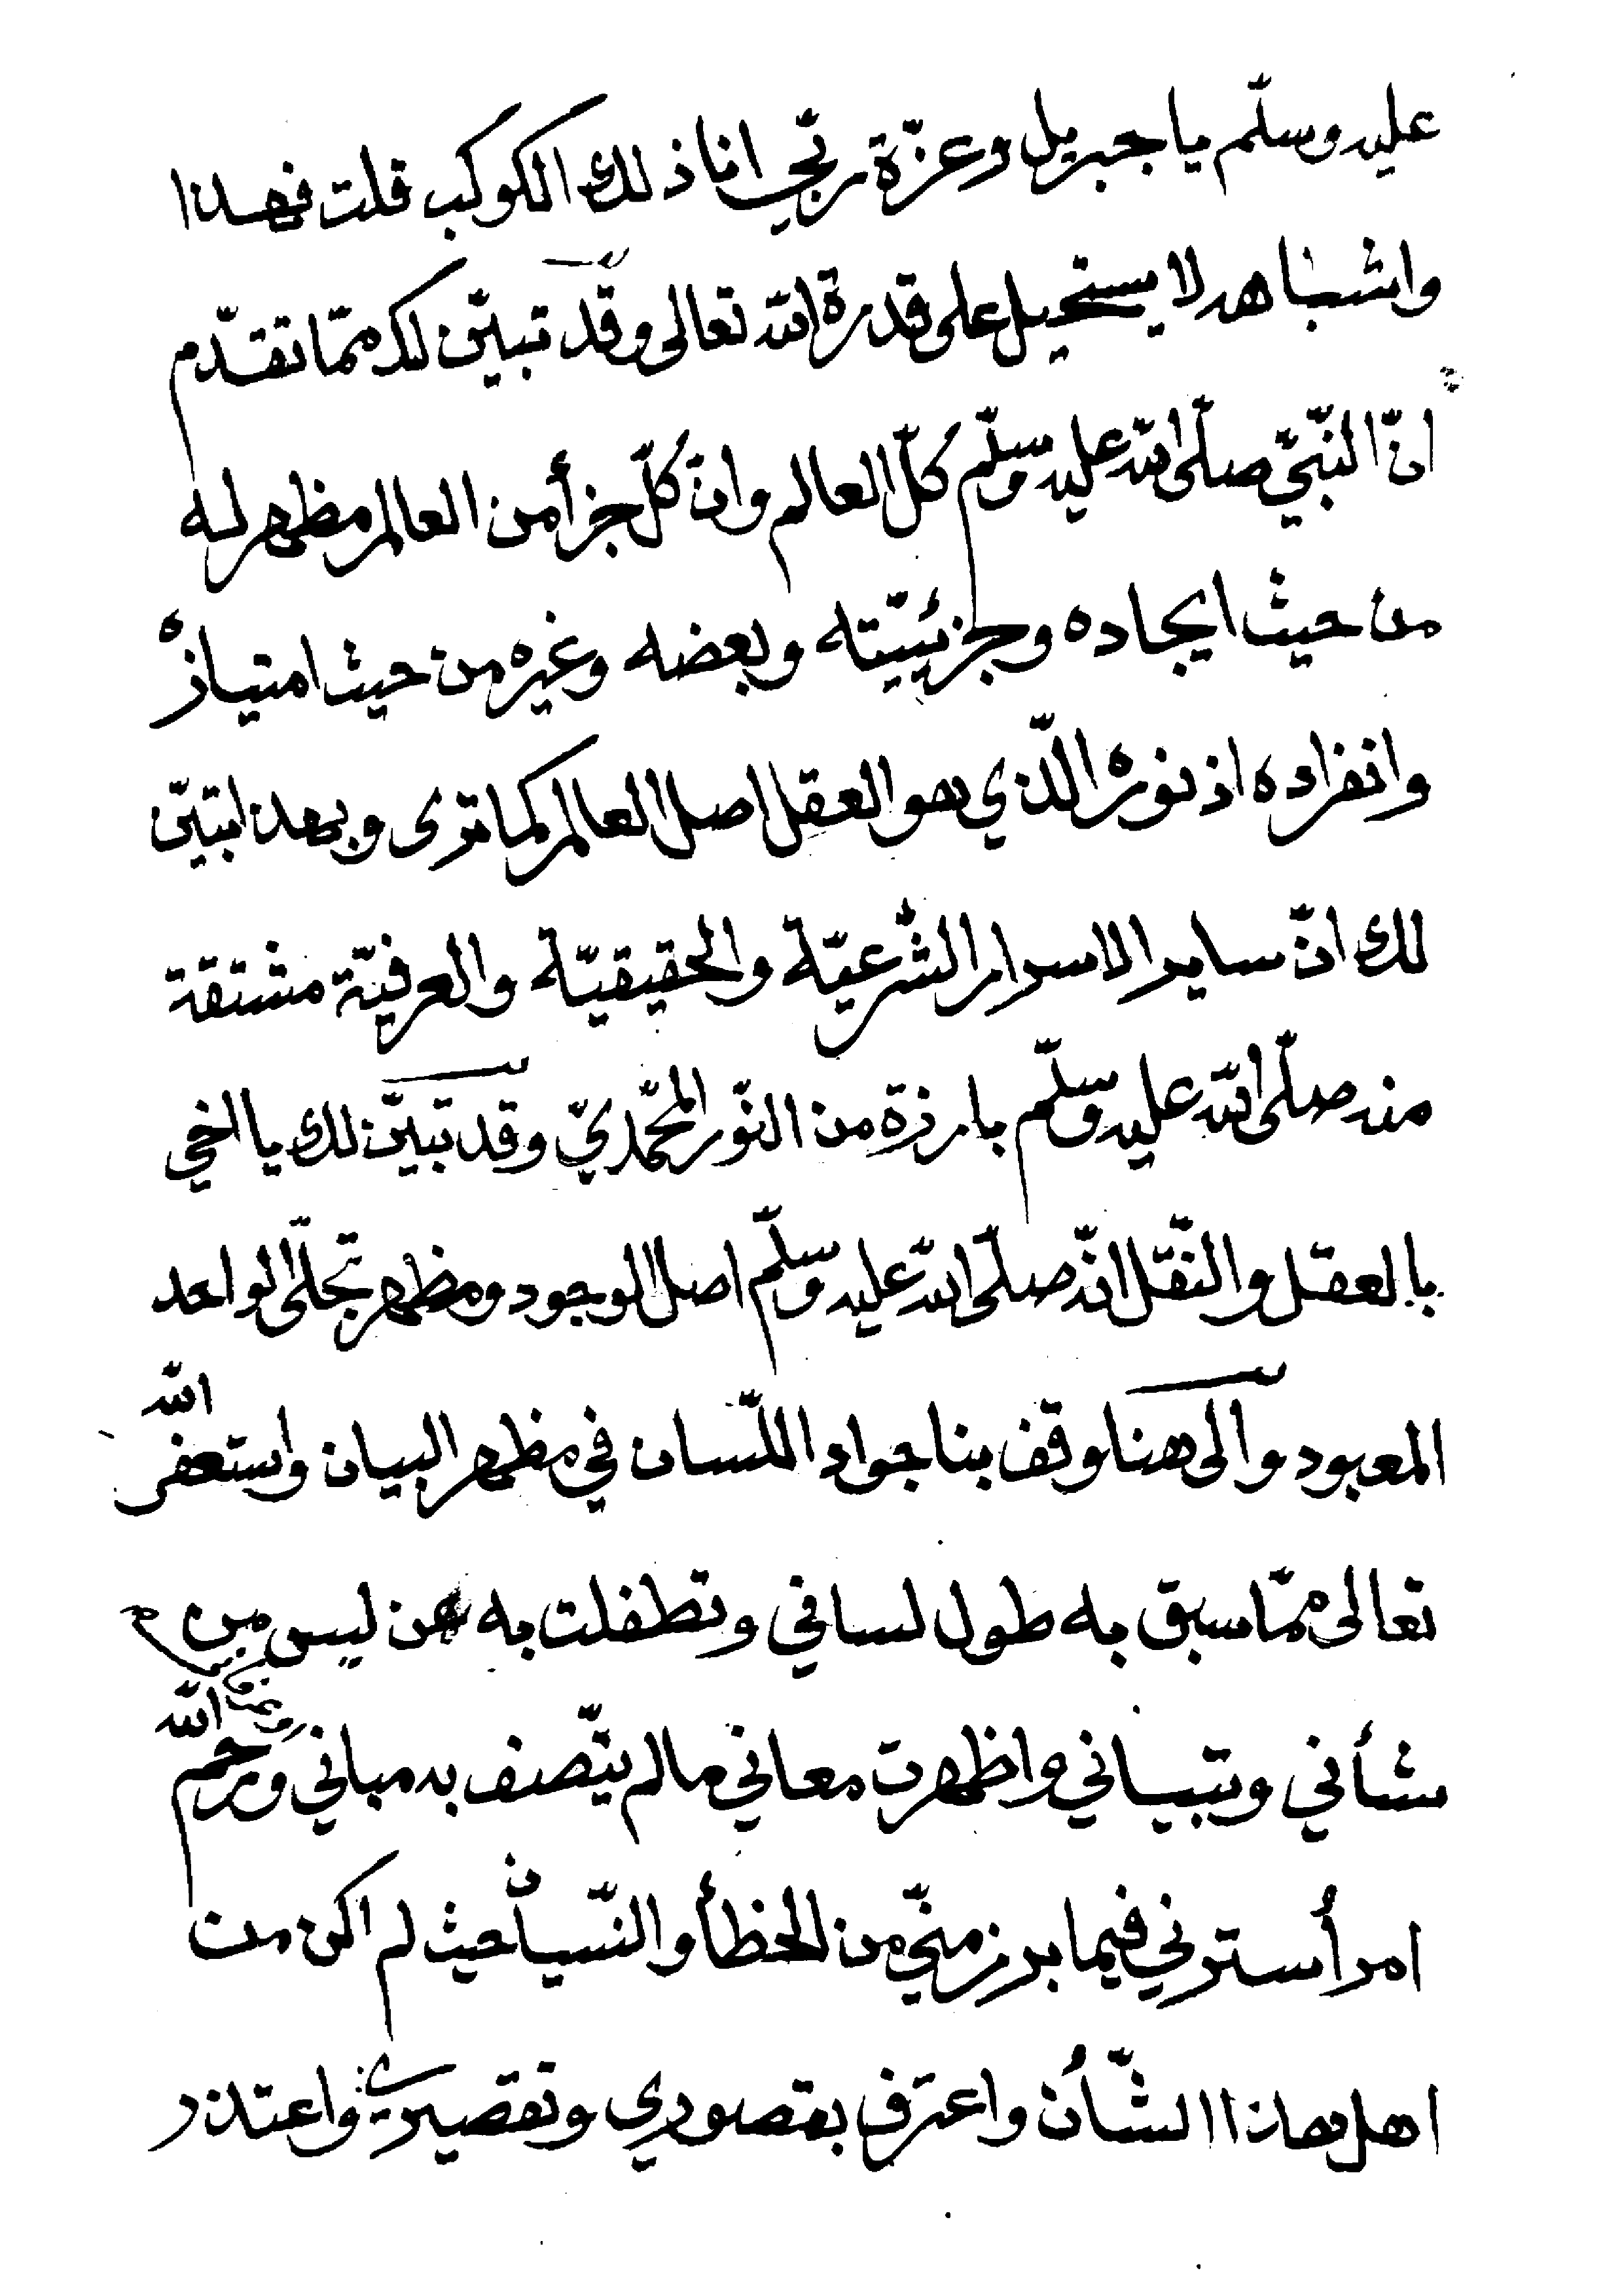 عليه وسلّم يا جبريل وعزّة ربّي انا ذلك الكوكب قلت فهذا
واشباهه لا يستحيل على قدرة الله تعالى وقد تبيّن لك ممّا تقدّم
انّ النبّيّ صلّى الله عليه وسلّم كلّ العالم وانّ كلّ جزأ من العالم مظهر له
من حيث ايجاده وجزئيّته وبعضه وغيره من حيث امتيازه
وانفراده اذ نوره الّذي هو العقل اصل العالم كما ترى وبهذا تبيّن
لك انّ ساير الاسرار الشّرعيّة والحقيقيّة والعرفيّة مشتقة
منه صلّى الله عليه وسلّم بارزة من النّور المحمّديّ وقد تبيّن لك يا اخي
بالعقل والنّقل انّه صلّى الله عليه وسلّم اصل الوجود ومظهر تجلّى الواحد
المعبود والى هنا وقف بنا جواد اللّسان في مظهر البيان واستغفر الله
تعالى ممّا سبق به طول لساني وتطفلت به عن ليس من
شأني وتبياني واظهرت معاني ما لم يتّصف به مباني ورحم الله
امرأ سترني فيما برز منّي من الخطأ والنّسيان حيث لم اكن من
اهل هذا الشّأن واعترف بقصوري وتقصيري واعتذر